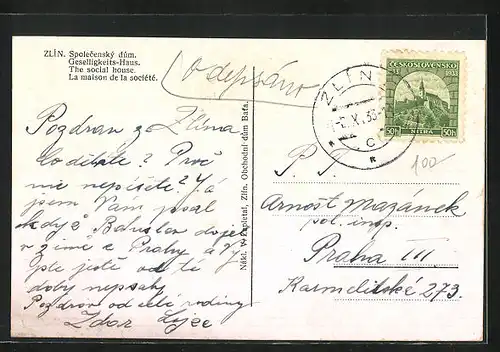 ZLÍN. Společenský dům.
Geselligkeits-Haus.
The social house.
La maison de la société.
odepsáno
Pozdrav ze Zlína
Co děláte? Proč
mě nepíšete? Já
jsem Vám psal
když Boluslav dojel
v zimě z Prahy a Vy
jste ještě od té
doby nepsaly
Pozdrav od celé rodiny
Zdar
Nákl. Zapletal, Zlín. Obchodní dům Baťa.
ČESKOSLOVENSKO
1933
50h NITRA 50h
ZLÍN
100-
P. T.
Arnošt Mazánek
pol. insp.
Praha III
Karmelitská 273.